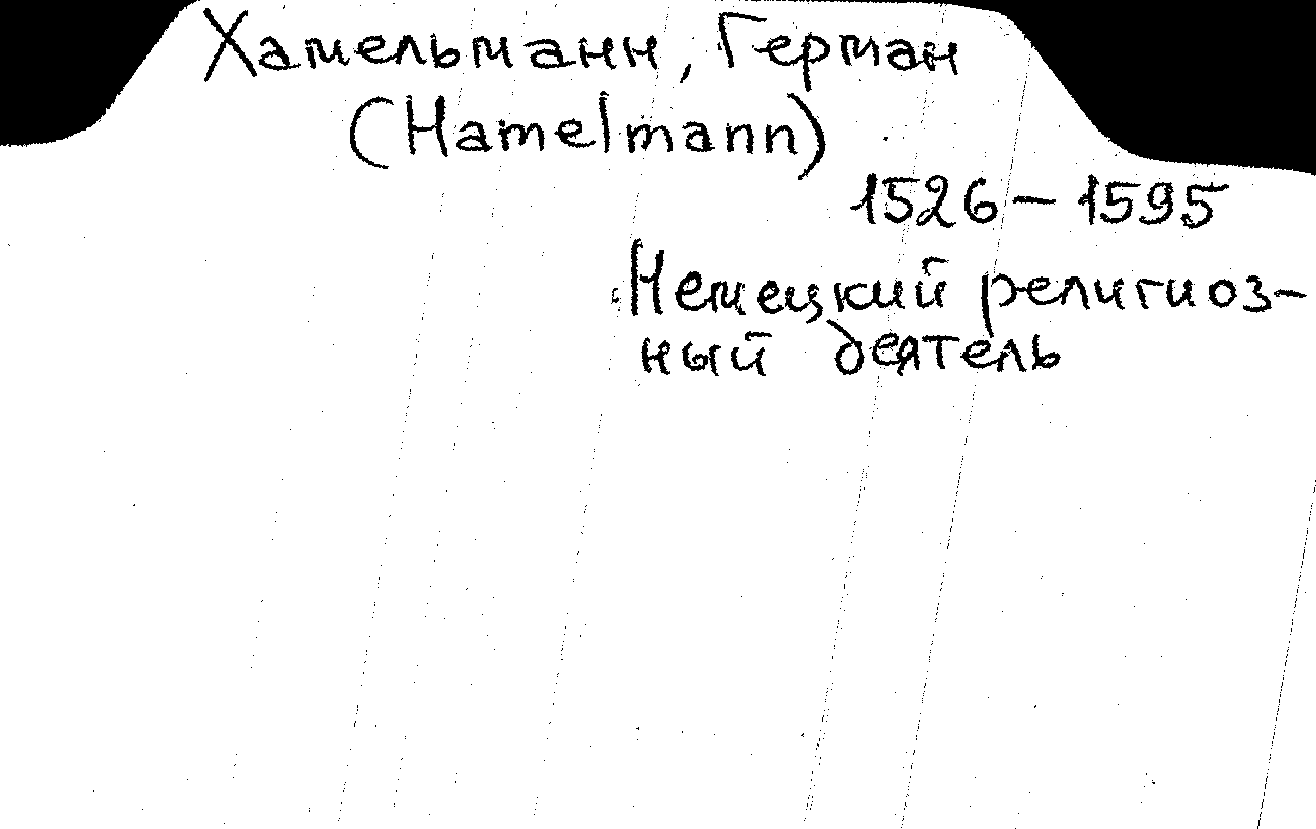 Хамельманн, Герман
(Hamelmann)
1526 – 1595
Немецкий религиоз-
ный деятель